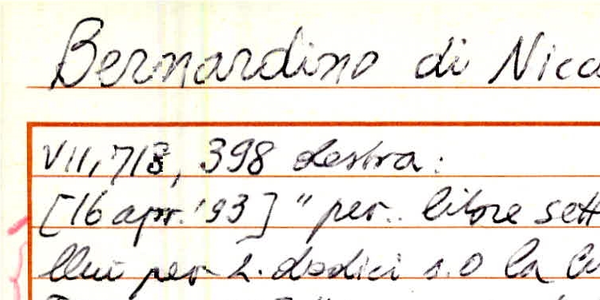 Bernardino di Nico
VII, 713, 398 destra:
[16 apr. '93] " per.. libre sett
llui per L. dodici s. 0 la